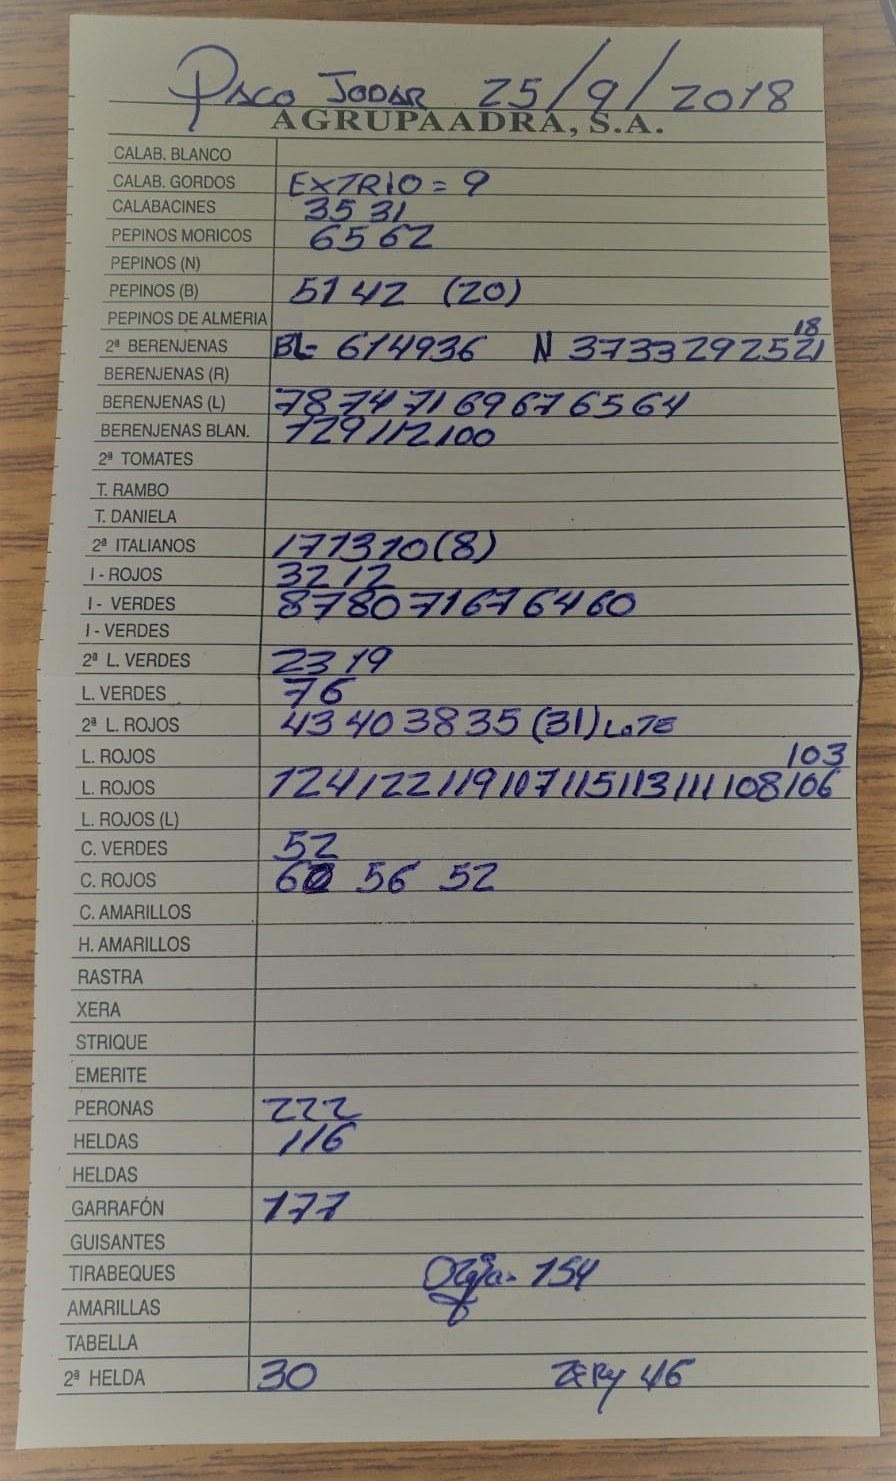 PACO JODAR 25/9/2018
AGRUPAADRA, S.A.
CALAB. BLANCO
CALAB. GORDOS EXTRIO = 9
CALABACINES 35 31
PEPINOS MORICOS 65 62
PEPINOS (N)
PEPINOS (B) 51 42 (20)
PEPINOS DE ALMERIA
18
2ª BERENJENAS BL= 61 49 36 N 37 33 29 25 21
BERENJENAS (R)
BERENJENAS (L) 78 74 71 69 67 65 64
BERENJENAS BLAN. 129 112 100
2ª TOMATES
T. RAMBO
T. DANIELA
2ª ITALIANOS 17 13 10 (8)
I - ROJOS 32 12
I - VERDES 87 80 71 67 64 60
I - VERDES
2ª L. VERDES 23 19
L. VERDES 76
2ª L. ROJOS 43 40 38 35 (31) LOTE
L. ROJOS 103
L. ROJOS 124 122 119 107 115 113 111 108 106
L. ROJOS (L)
C. VERDES 52
C. ROJOS 60 56 52
C. AMARILLOS
H. AMARILLOS
RASTRA
XERA
STRIQUE
EMERITE
PERONAS 222
HELDAS 116
HELDAS
GARRAFÓN 177
GUISANTES
TIRABEQUES 154
AMARILLAS
TABELLA
2ª HELDA 30 ZERY 46